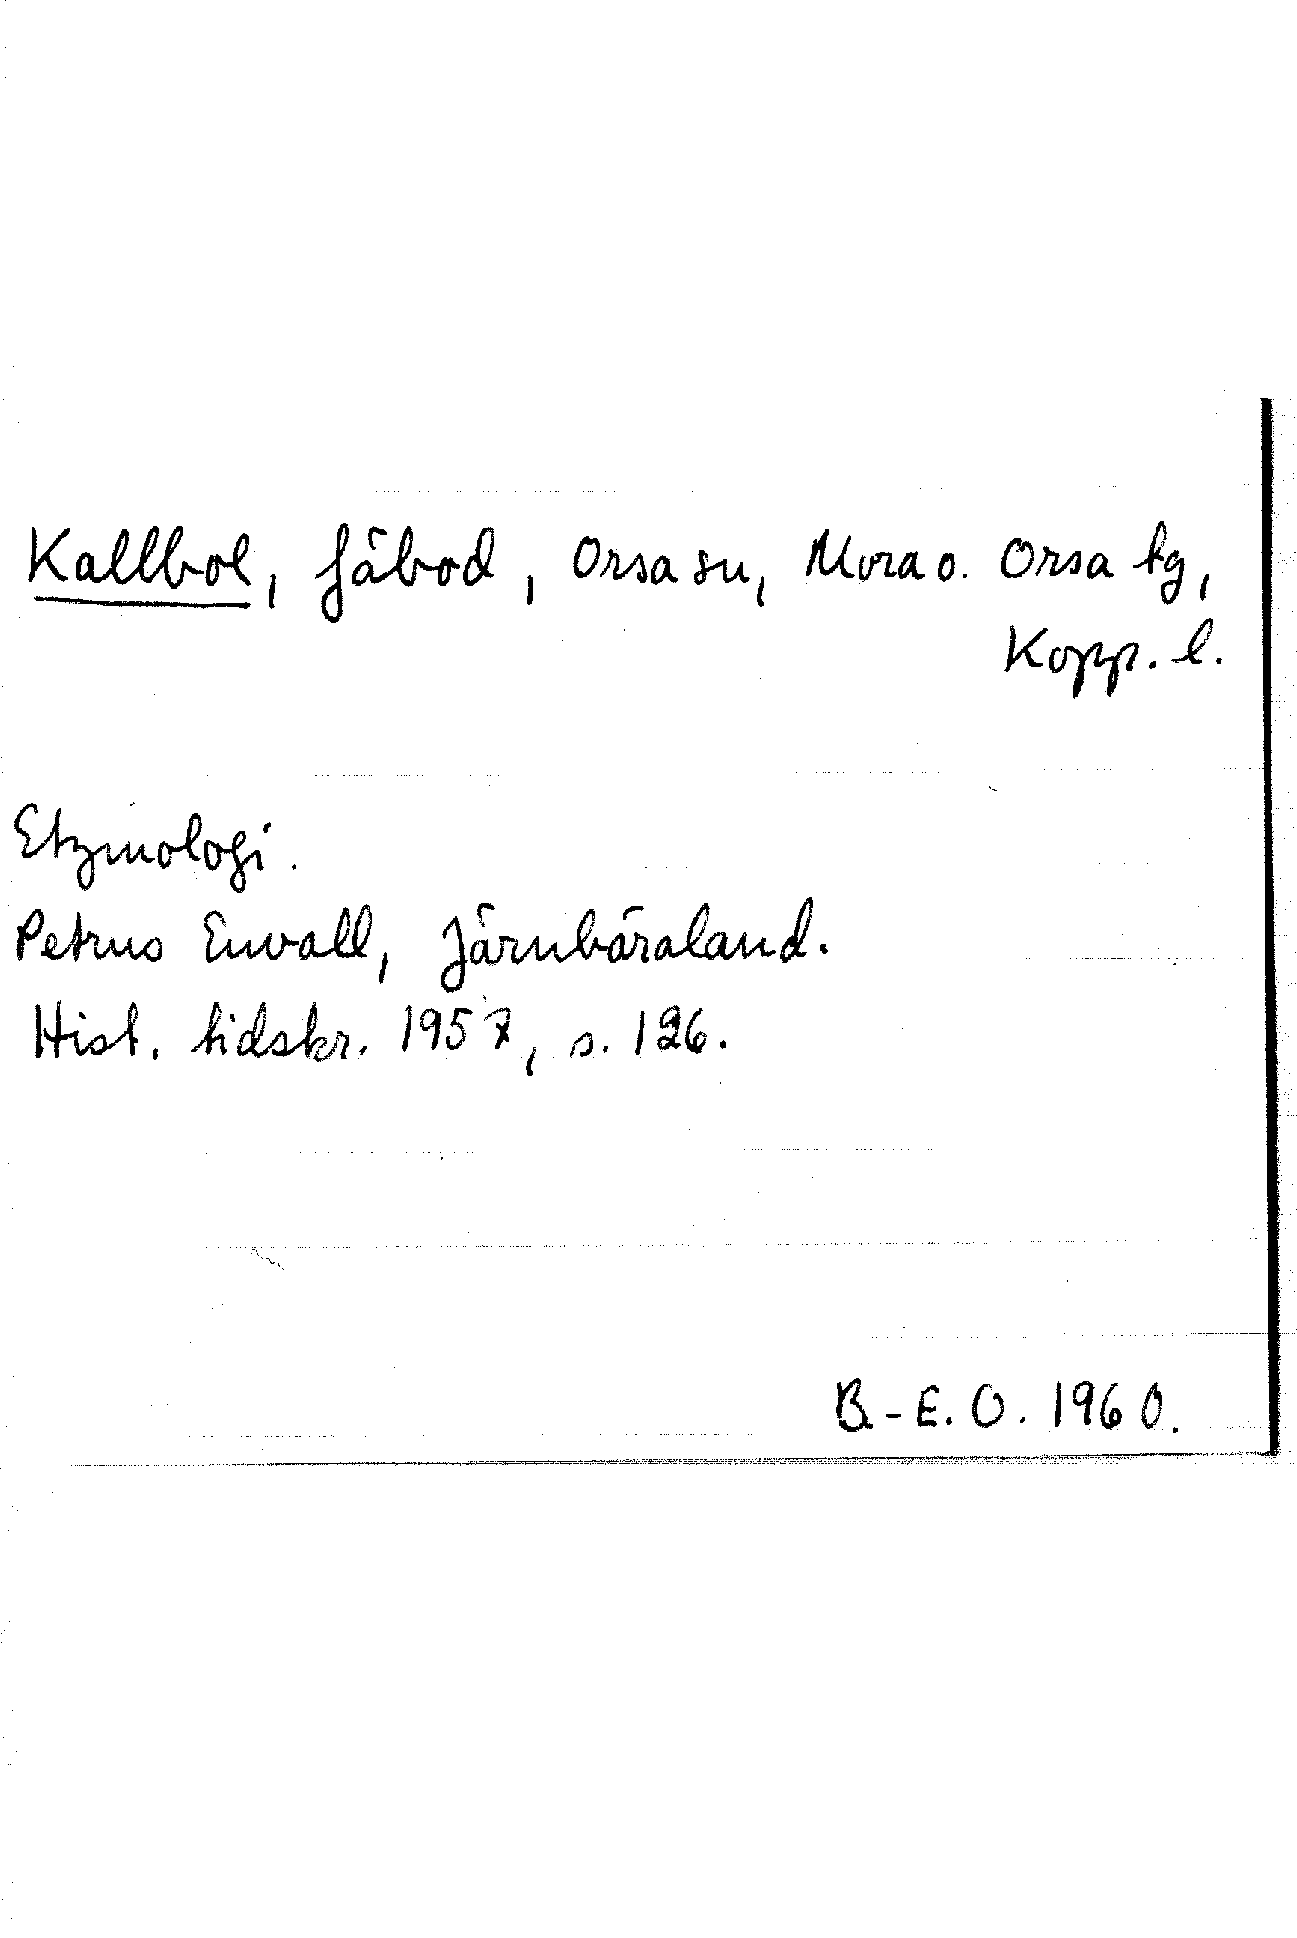 Kallbol, fäbod, Orsa sn, Mora o. Orsa tg,
Kopp. l.
Etymologi.
Petrus Envall, Järnbäraland.
Hist. tidskr. 1957, s. 126.
B.-E. O. 1960.